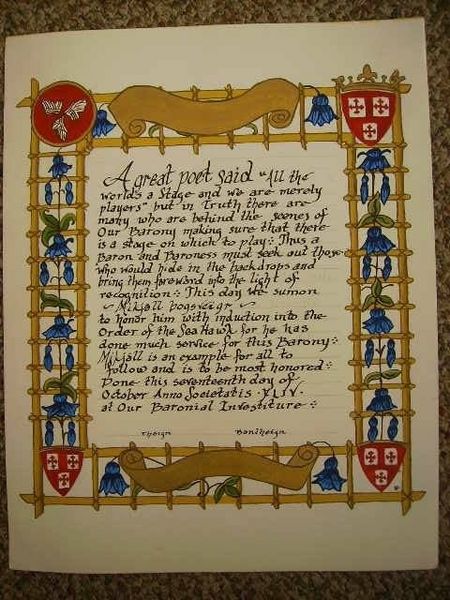 A great poet said "All the
world's a Stage and we are merely
players" but in Truth there are
many who are behind the scenes of
Our Barony making sure that there
is a stage on which to play: Thus a
Baron and Baroness must seek out those
who would hide in the backdrops and
bring them foreward into the light of
recognition: This day we sumon
~ Mikjall bogsveigr ~
to honor him with induction into the
Order of the Sea Hawk for he has
done much service for this Barony:
Mikjall is an example for all to
follow and is to be most honored:
Done this seventeenth day of
October Anno Societatis · XLIV.
at Our Baronial Investiture :